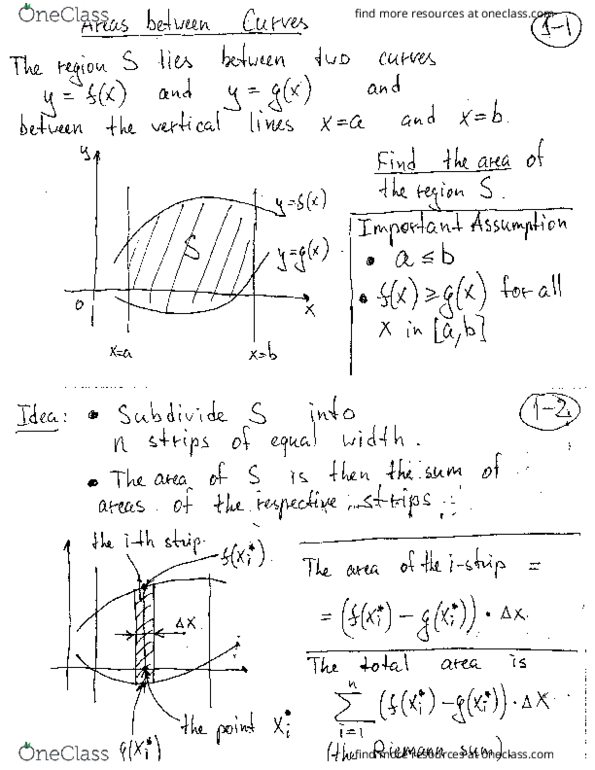 OneClass
find more resources at oneclass.com
Areas between Curves
1-1
The region S lies between two curves
y = f(x) and y = g(x) and
between the vertical lines x=a and x=b.
Find the area of
the region S.
y
y=f(x)
S
y=g(x)
0
x
x=a
x=b
Important Assumption
• a ≤ b
• f(x) ≥ g(x) for all
x in [a,b]
1-2
Idea: • Subdivide S into
n strips of equal width.
• The area of S is then the sum of
areas of the respective strips
the i-th strip
f(xi*)
Δx
the point xi*
g(xi*)
The area of the i-strip =
= (f(xi*) - g(xi*)) • Δx
The total area is
n
∑ (f(xi*) - g(xi*)) • Δx
i=1
(the Riemann sum)
OneClass
find more resources at oneclass.com